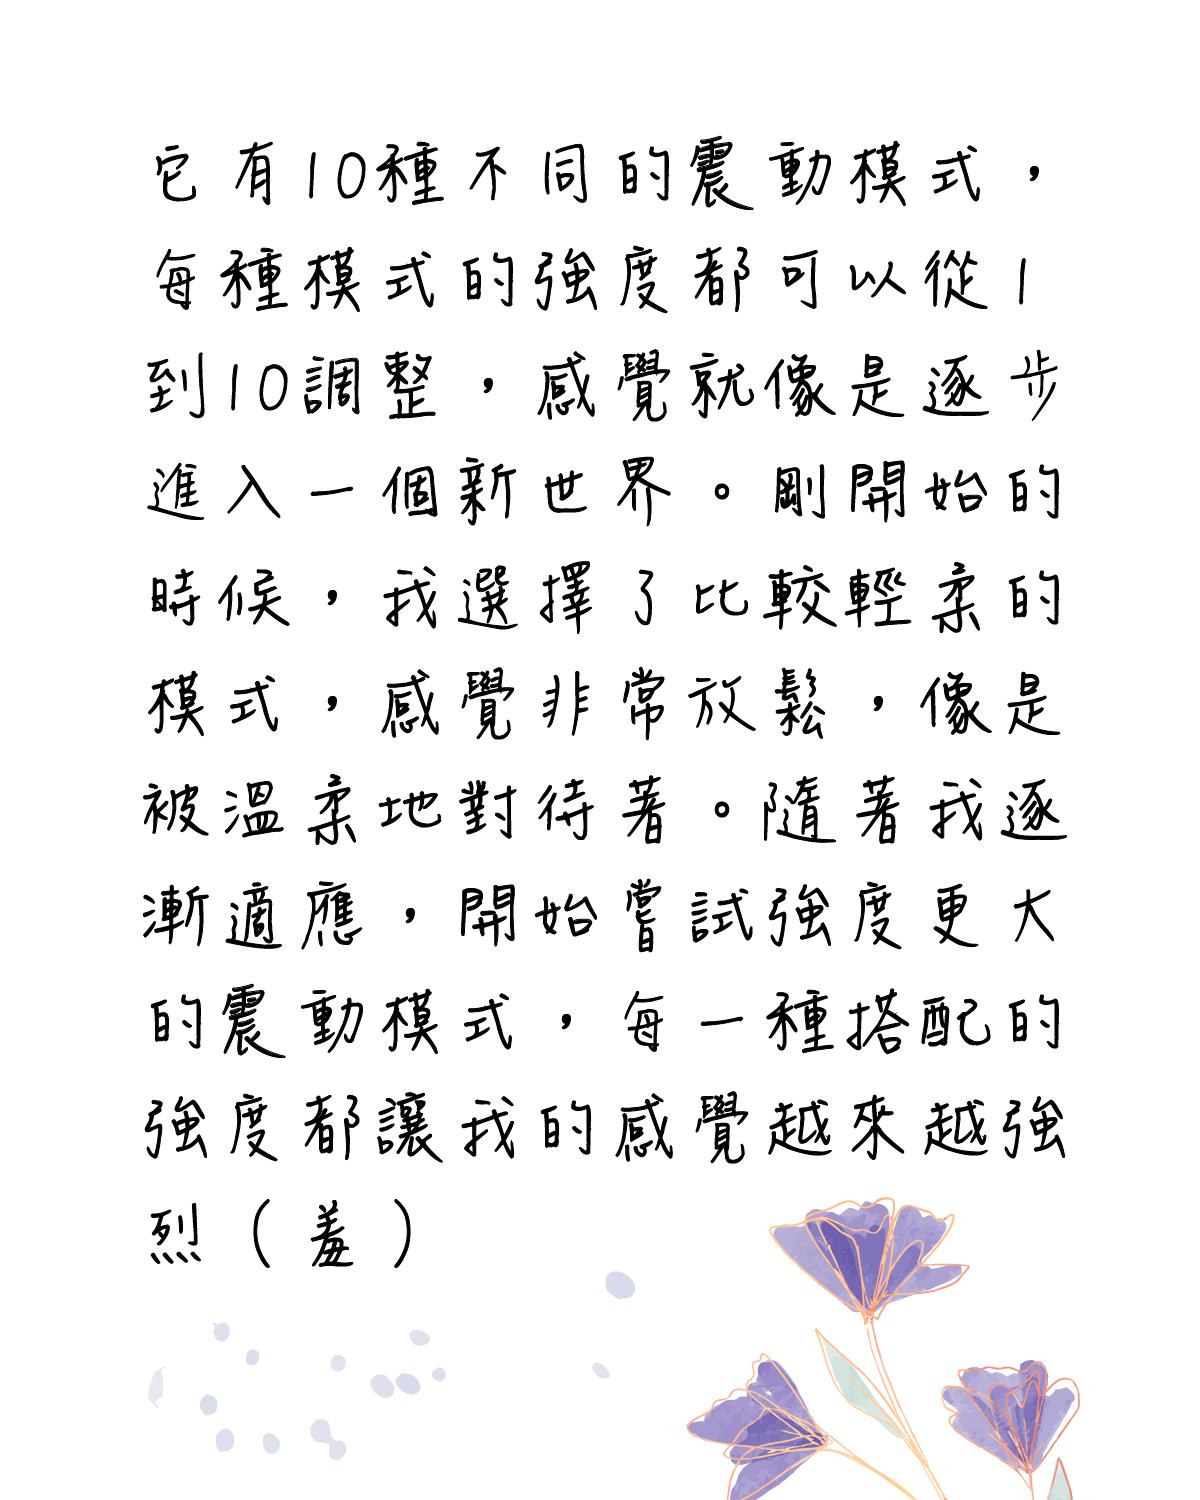 它有10種不同的震動模式，
每種模式的強度都可以從1
到10調整，感覺就像是逐步
進入一個新世界。剛開始的
時候，我選擇了比較輕柔的
模式，感覺非常放鬆，像是
被溫柔地對待著。隨著我逐
漸適應，開始嘗試強度更大
的震動模式，每一種搭配的
強度都讓我的感覺越來越強
烈（羞）